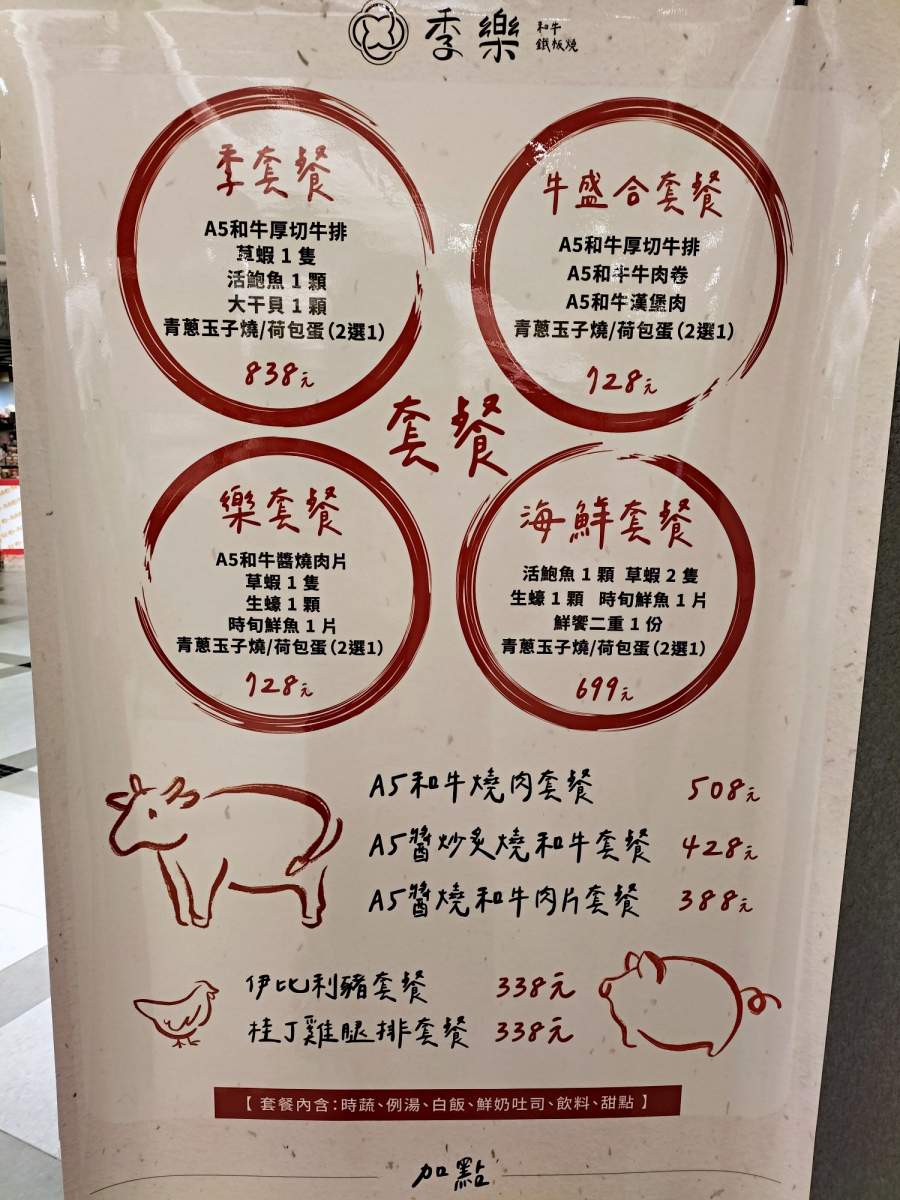 季樂 和牛
鐵板燒
季套餐
A5和牛厚切牛排
草蝦 1 隻
活鮑魚 1 顆
大干貝 1 顆
青蔥玉子燒/荷包蛋(2選1)
838元
牛盛合套餐
A5和牛厚切牛排
A5和牛牛肉卷
A5和牛漢堡肉
青蔥玉子燒/荷包蛋(2選1)
728元
套餐
樂套餐
A5和牛醬燒肉片
草蝦 1 隻
生蠔 1 顆
時旬鮮魚 1 片
青蔥玉子燒/荷包蛋(2選1)
728元
海鮮套餐
活鮑魚 1 顆 草蝦 2 隻
生蠔 1 顆 時旬鮮魚 1 片
鮮饗二重 1 份
青蔥玉子燒/荷包蛋(2選1)
699元
A5和牛燒肉套餐 508元
A5醬炒炙燒和牛套餐 428元
A5醬燒和牛肉片套餐 388元
伊比利豬套餐 338元
桂丁雞腿排套餐 338元
【 套餐內含:時蔬、例湯、白飯、鮮奶吐司、飲料、甜點 】
加點